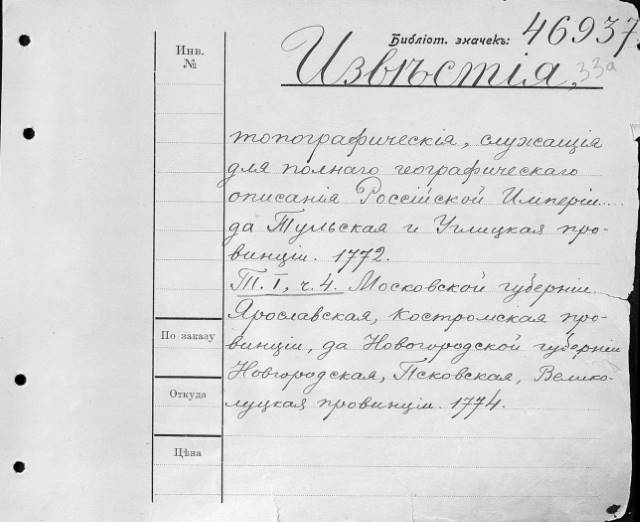 Библіот. значекъ: 46937.
Инв.
№
Извѣстія,
33а
топографическія, служащія
для полнаго географическаго
описанія Россійской Имперіи....
да Тульская и Углицкая про-
винціи. 1772.
Т. I, ч. 4. Московской губерніи
Ярославская, Костромская про-
винціи, да Новогородской губерніи
Новгородская, Псковская, Велико-
луцкая провинціи. 1774.
По заказу
Откуда
Цѣна